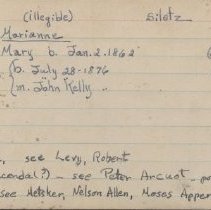 (illegible) Siletz
Marianne
Mary b. Jan. 2. 1862 (
(b. July 28-1876
(m. John Kelly
see Levy, Robert
cendal?) - see Peter Arcuot -
see Metsker, Nelson Allen, Moses Apper